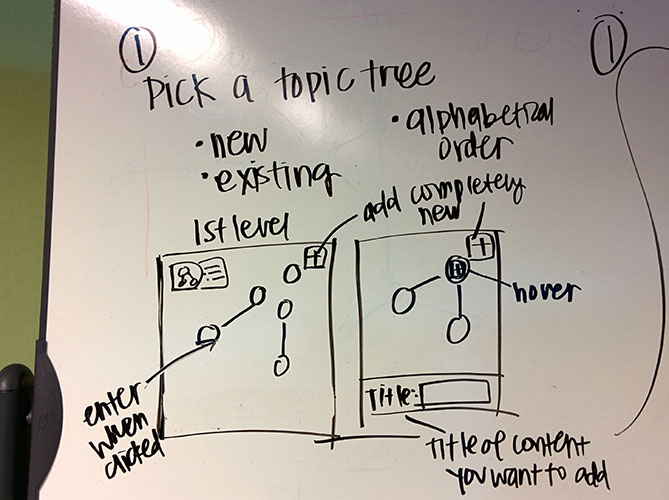 ①
Pick a topic tree
• new
• existing
• alphabetical
order
1st level
add completely
new
+
+
hover
enter
when
clicked
Title:
Title of content
you want to add
①